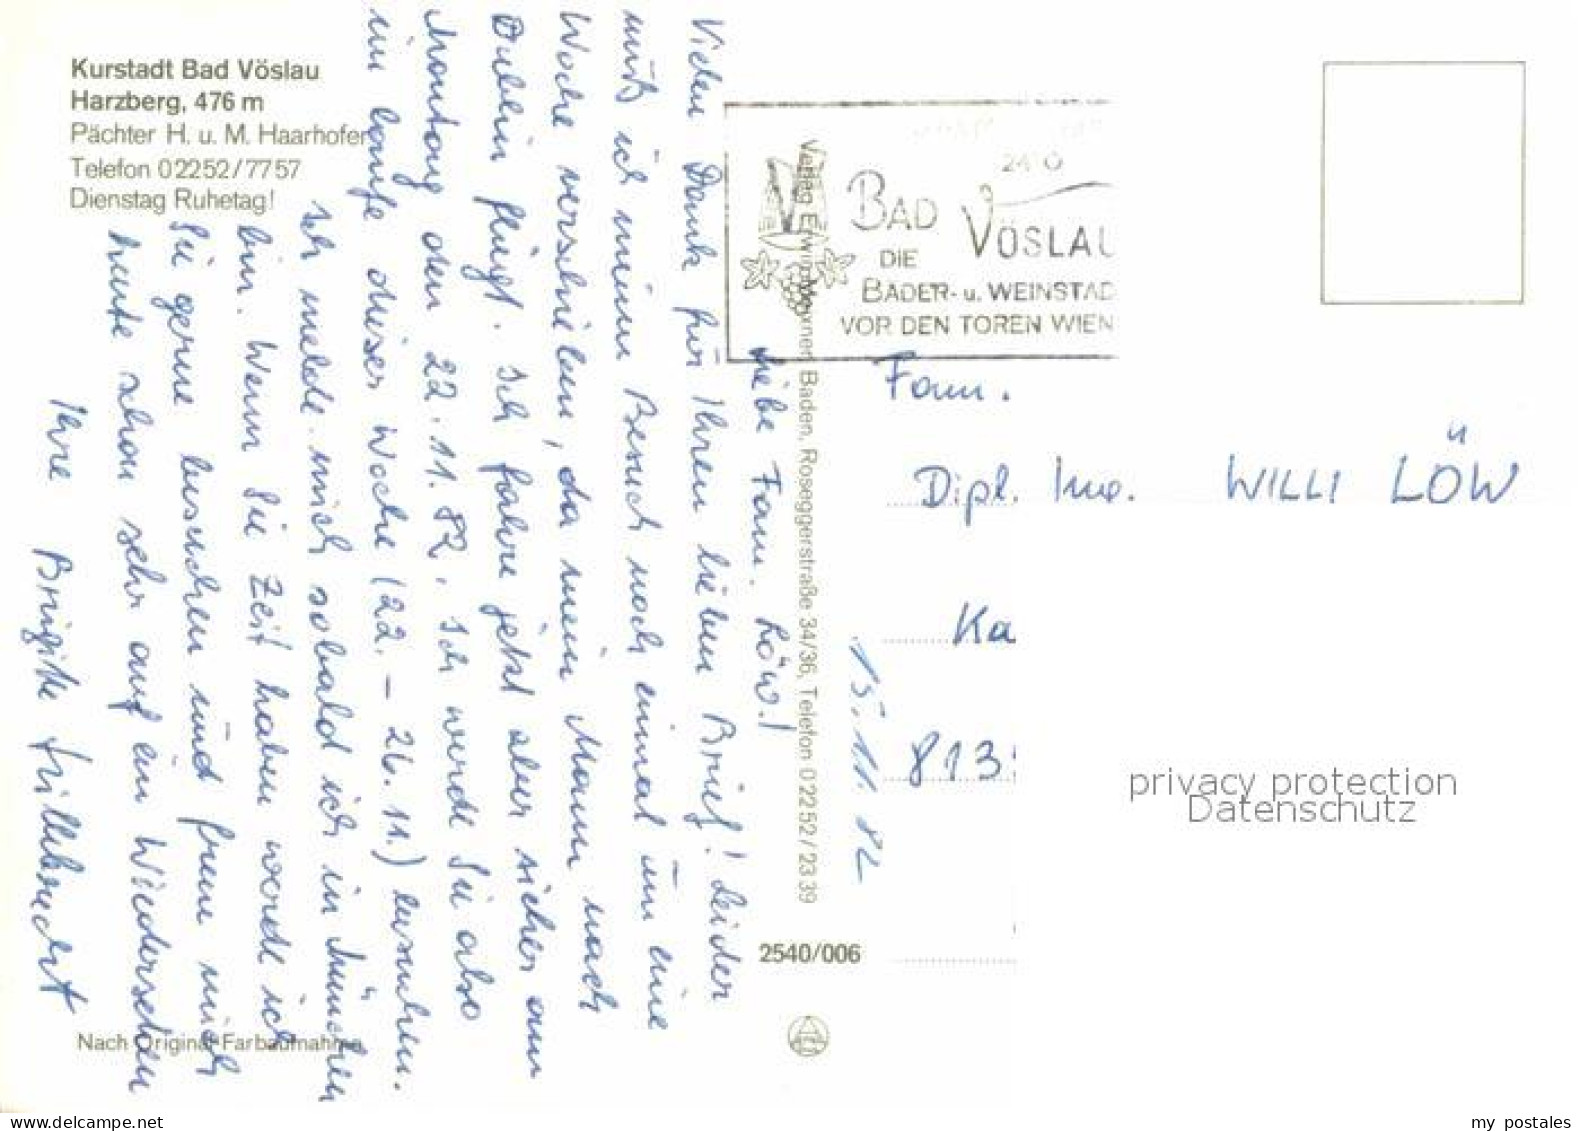 Kurstadt Bad Vöslau
Harzberg, 476 m
Pächter H. u. M. Haarhofer
Telefon 02252/7757
Dienstag Ruhetag!
15.11.82
Liebe Fam. Löw!
Vielen Dank für Ihren lieben Brief! Leider
muß ich meinen Besuch noch einmal um eine
Woche verschieben, da mein Mann nach
Dublin fliegt. Ich fahre jetzt aber sicher am
Montag den 22.11.82. Ich werde Sie also
im Laufe dieser Woche (22. – 26.11.) besuchen.
Ich melde mich sobald ich in München
bin. Wenn Sie Zeit haben werde ich
Sie gerne besuchen und freue mich
heute schon sehr auf ein Wiedersehen
Ihre Brigitte
Nach Original-Farbaufnahme
Verlag Erwin Baden, Roseggerstraße 34/36, Telefon 02252/2339
2540/006
BAD VÖSLAU
DIE
BADER- u. WEINSTAD
VOR DEN TOREN WIEN
Fam.
Dipl. Ing. WILLI LÖW
Ka
813
privacy protection
Datenschutz
my postales